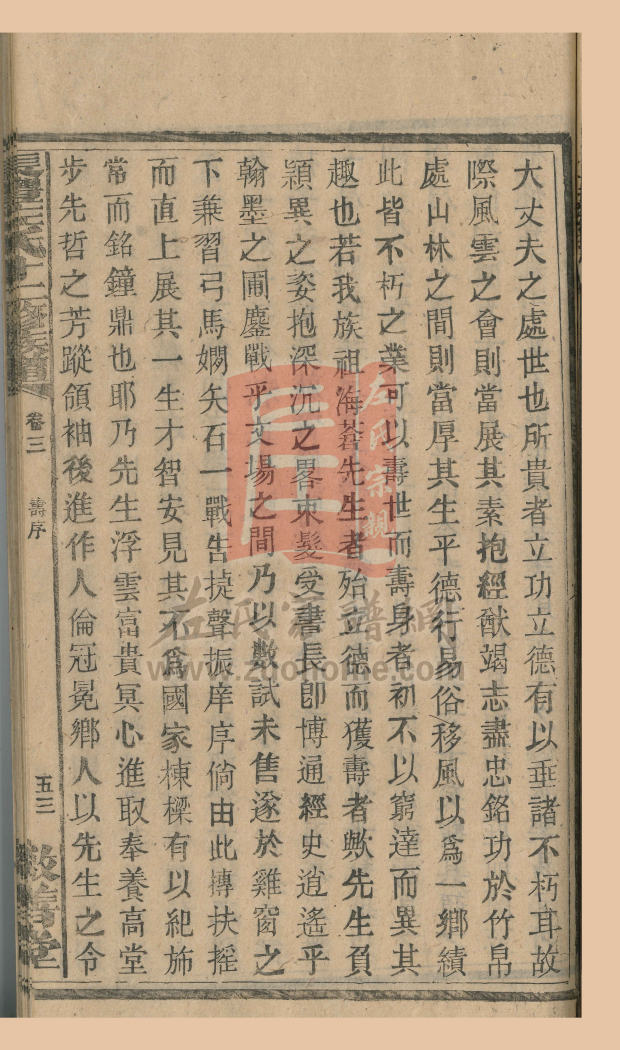 大丈夫之處世也所貴者立功立德有以垂諸不朽耳故
際風雲之會則當展其素抱經猷竭志盡忠銘功於竹帛
處山林之間則當厚其生平德行易俗移風以爲一鄉績
此皆不朽之業可以壽世而壽身者初不以窮達而異其
趣也若我族祖海蓉先生者殆立德而獲壽者歟先生負
穎異之姿抱深沉之畧束髮受書長卽博通經史逍遙乎
翰墨之圃鏖戰乎文場之間乃以數試未售遂於雞窗之
下兼習弓馬嫻矢石一戰告㨗聲振庠序倘由此摶扶搖
而直上展其一生才智安見其不爲國家棟樑有以紀旂
常而銘鐘鼎也耶乃先生浮雲富貴冥心進取奉養高堂
步先哲之芳蹤領袖後進作人倫冠冕鄉人以先生之令
氏十二修族譜 卷三 壽序 五三 敬善堂
左氏宗親
左氏宗譜網
www.zuohome.com